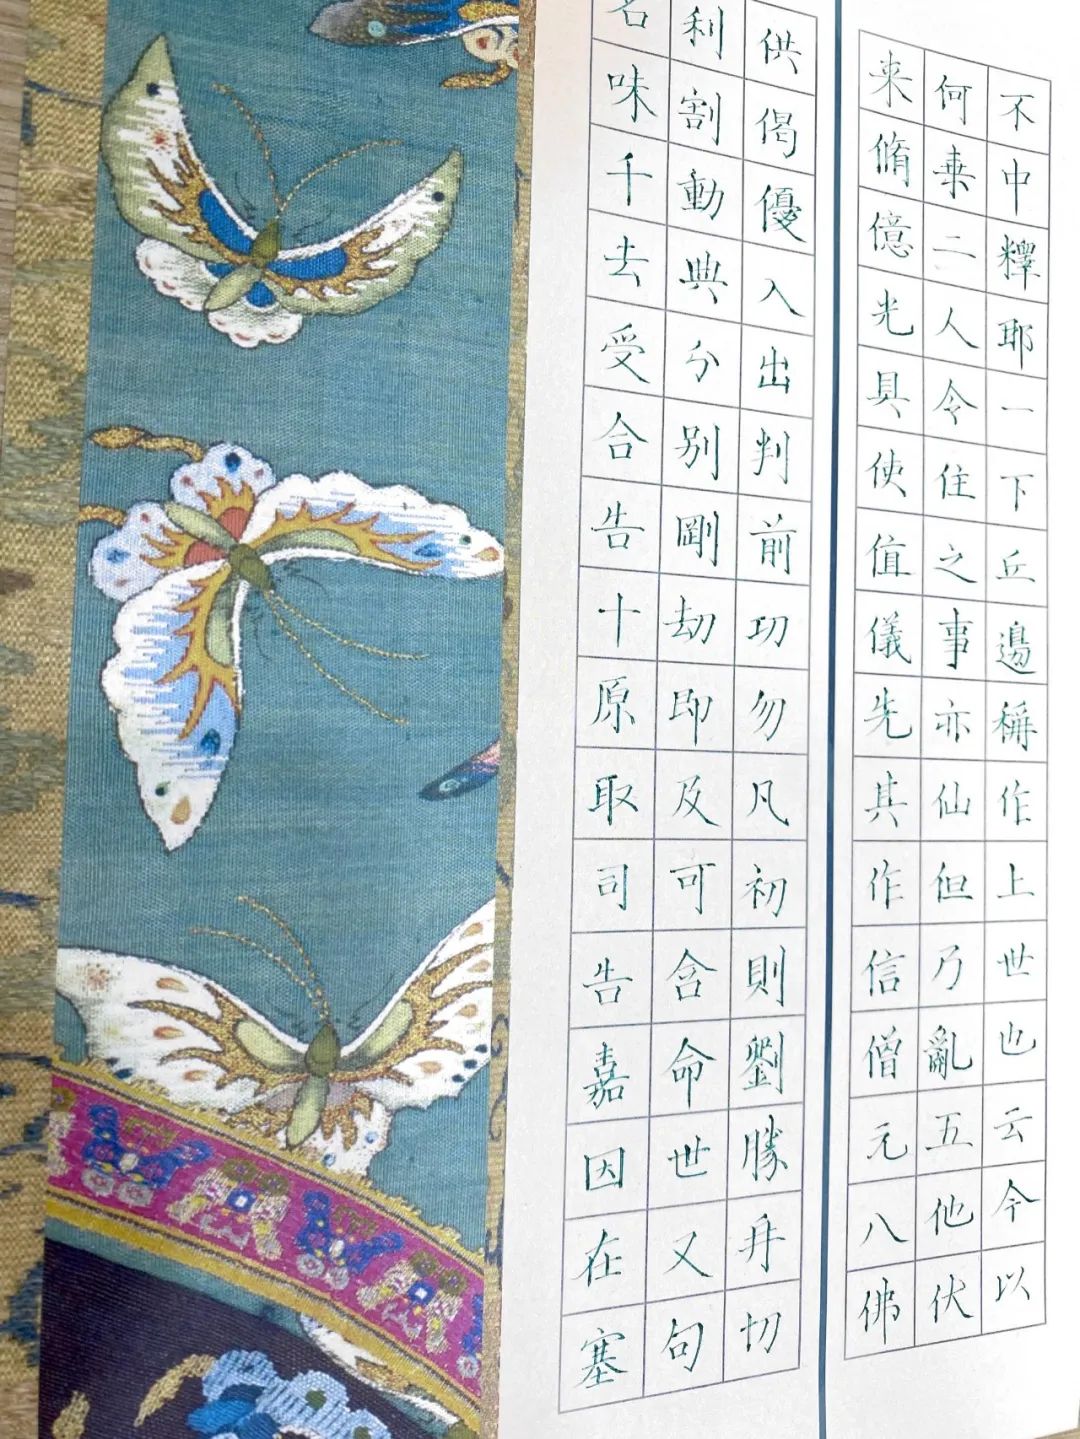 不中釋耶一下丘邊稱作上世也云今以
何乗二人令住之事亦仙但乃亂五他伏
来脩億光具使值儀先其作信僧元八佛
供偈優入出判前功勿凡初則劉勝舟切
利割動典分別剛劫即及可含命世又句
名味千去受合告十原取司告嘉因在塞